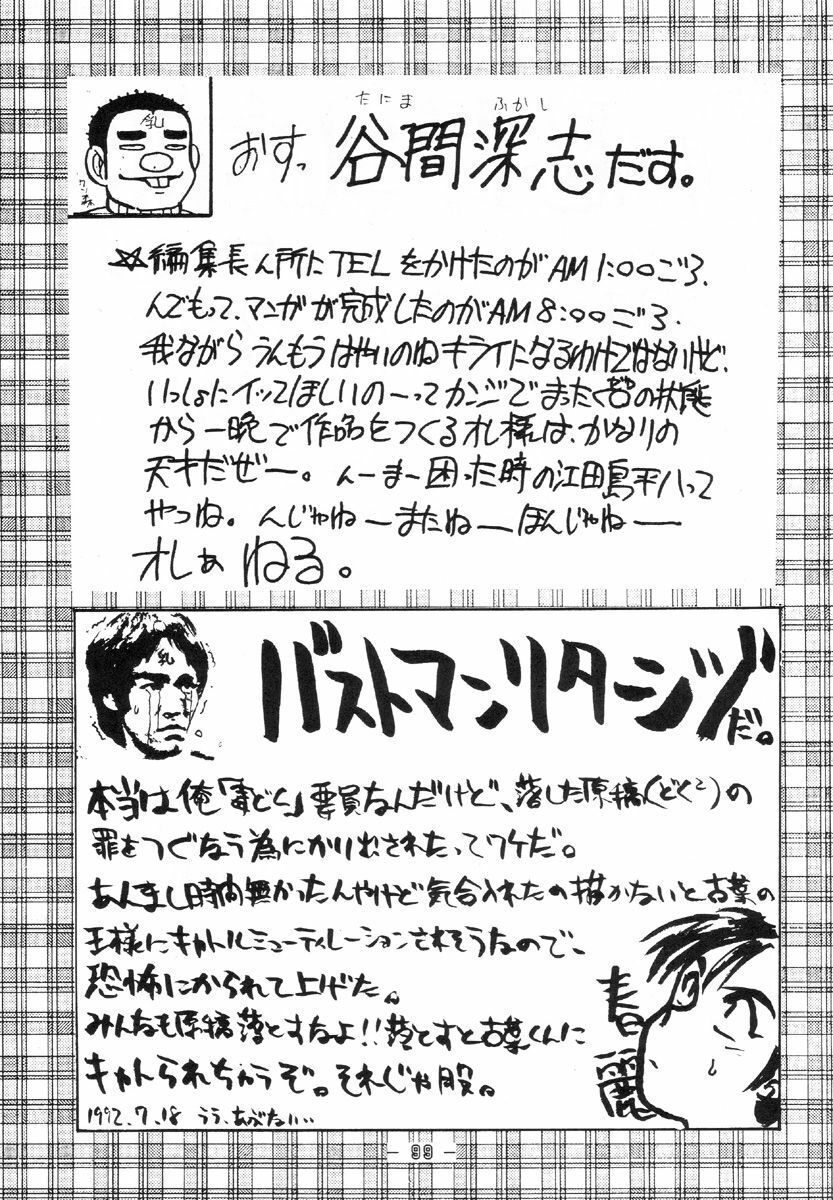 乳
たにま ふかし
おすっ 谷間深志だす。
☆編集長ん所にTELをかけたのがAM1:00ごろ、
んでもって、マンガが完成したのがAM8:00ごろ、
我ながらうんもうはやいのねキライになるわけではないけど、
いっしょにイッてほしいのーってカンジでまったくゼロの状態
から一晩で作品をつくるオレ様は、かなりの
天才だぜー。んーまー困った時の江田島平八って
やつね。んじゃねーまたねーほんじゃねー
オレぁ ねる。
乳
バストマンリターンヅだ。
本当は俺「毒どら」要員なんだけど、落した原稿(どく2)の
罪をつぐなう為にかり出されたってワケだ。
あんまし時間無かったんやけど気合入れたの描かないと古葉の
王様にキャトルミューティレーションされそうなので、
恐怖にかられて上げた。
みんなも原稿落とすなよ!!落とすと古葉くんに
キャトられちゃうぞ。それじゃ股。
1992.7.18 うう、あぶない…
春麗
- 99 -